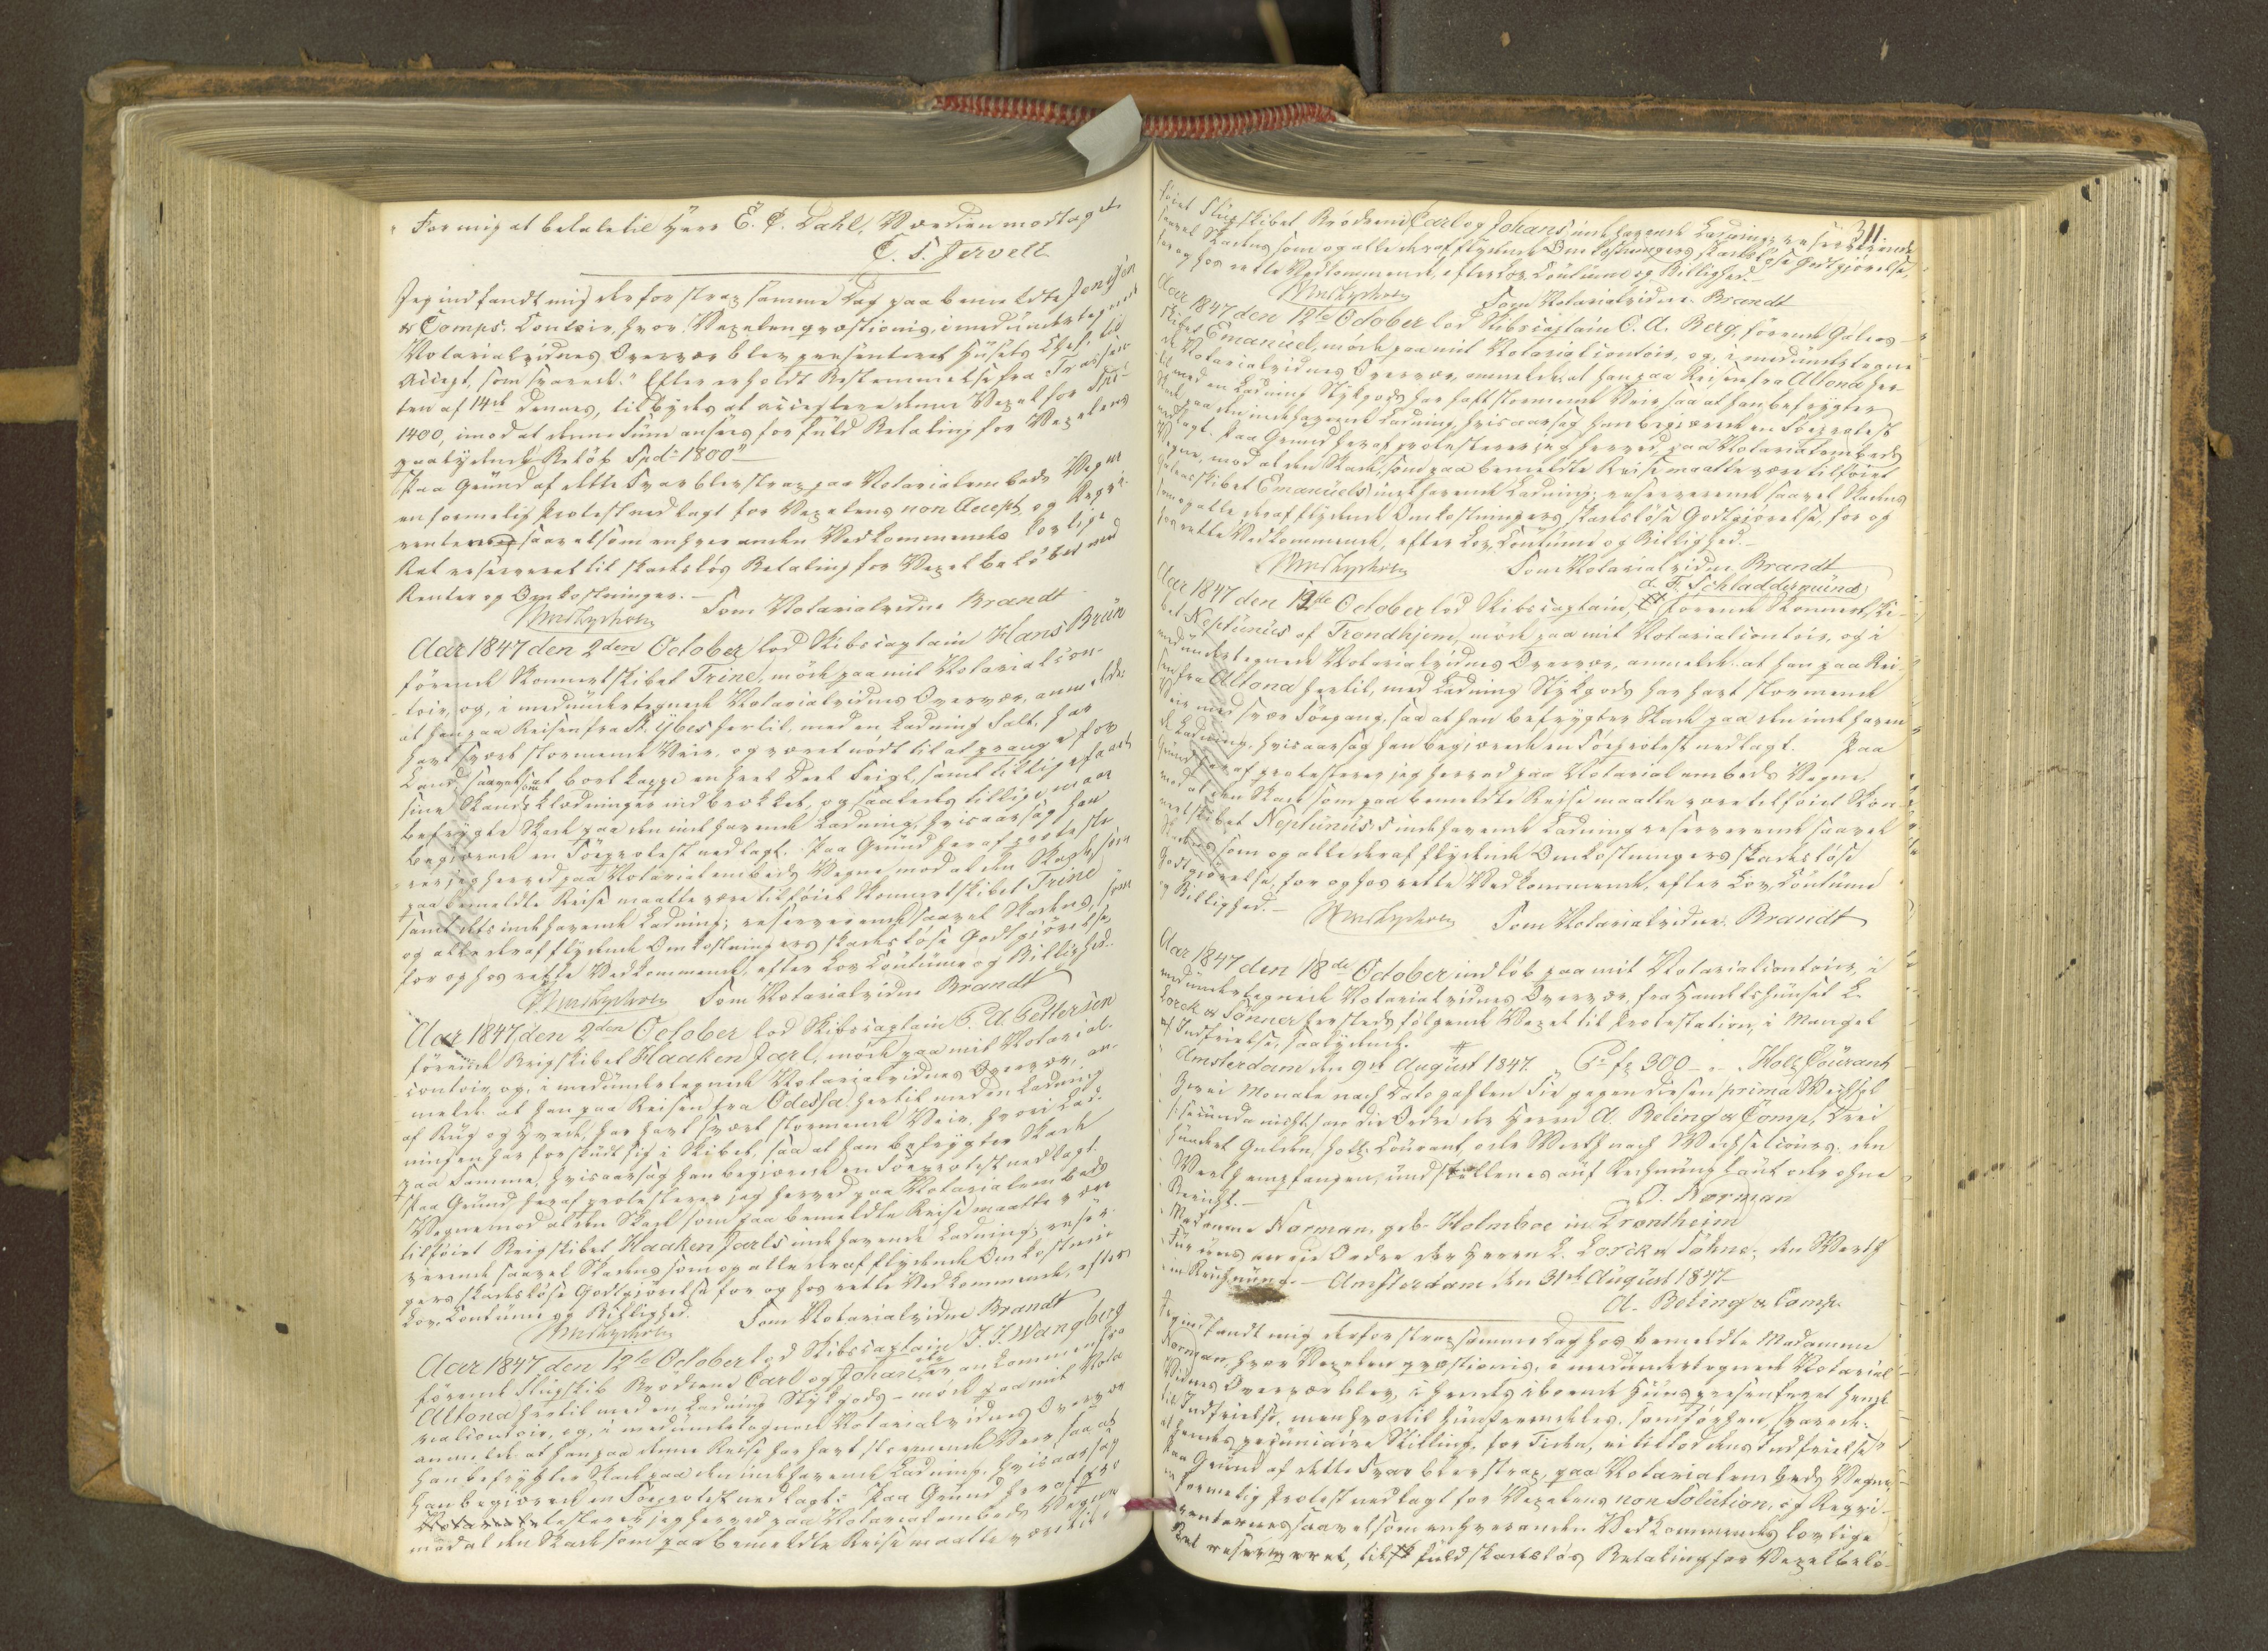 " For mig at betale til Herr E. P. Dahl, Værdien modtaget.
C. S. Jervell
Jeg indfandt mig derfor strax samme Dag paa bemeldte Jenssen
& Comps. Contoir, hvor Vexelen qvæstionis, i medundertegnede
Notarialvidnes Overvær blev præsenteret Husets Chef til
Accept, som svarede: "Efter erholdt Bestemmelse fra Trassen-
ten af 14de dennes, tilbydes at acceptere denne Vexel for Spd
1400, imod at denne Sum ansees for fuld Betaling for Vexelens
paalydende Beløb Spd 1800"
Paa Grund af dette Svar blev strax paa Notarialembeds Vegne
en formelig Protest nedlagt for Vexelens non Accept, og Reqvi-
rentens saavelsom enhver anden Vedkommendes lovlige
Ret reserveret til skadesløs Betaling for Vexelbeløbet med
Renter og Omkostninger. –
Som Notarialvidne Brandt
Aar 1847 den 2den October lod Skibscaptain Hans Brün
førende Skonnertskibet Trine, møde paa mit Notarialcon-
toir, og, i medundertegnede Notarialvidnes Overvær, anmelde:
at han paa Reisen fra St. Ybes hertil, med en Ladning Salt, har
havt svært stormende Veir, og været nødt til at prange for
Land, saavelsom at bortkappe en heel Deel Seigl, samt tillige faaet
sine Skandseklædninger indbrækket, og saaledes tillige maae
befrygte Skade paa den indehavende Ladning, hvisaarsag han
begjærede en Søeprotest nedlagt. Paa Grund heraf proteste-
rer jeg herved paa Notarialembeds Vegne mod at den Skade, som
paa bemeldte Reise maatte være tilføiet Skonnertskibet Trine
samt dets indehavende Ladning; reserverende saavel Skadens, som
og alle deraf flydende Omkostningers skadesløse Godtgjørelse,
for og hos rette Vedkommende, efter Lov Coutume og Billighed.
Som Notarialvidne Brandt
Aar 1847, den 2den October lod Skibscaptain P. A. Pettersen
førende Brigskibet Haaken Jarl, møde paa mit Notarial-
contoir, og, i medundertegnede Notarialvidnes Overvær, an-
melde: at han paa Reisen fra Odessa hertil med en Ladning
af Rug og Hvede, har havt svært stormende Veir, hvori Lad-
ningen har forskudt sig i Skibet, saa at han befrygter Skade
paa Samme, hvisaarsag han begjærede en Søeprotest nedlagt.
Paa Grund heraf protesterer jeg herved paa Notarialembeds
Vegne mod at den Skade som paa bemeldte Reise maatte være
tilføiet Brigskibet Haaken Jarls indehavende Ladning; reser-
verende saavel Skadens som og alle deraf flydende Omkostnin-
gers skadesløse Godtgjørelse for og hos rette Vedkommende, efter
Lov, Coutume og Billighed.
Som Notarialvidne Brandt
Aar 1847 den 12te October lod Skibscaptain J. J. Wangberg
førende Slupskib Brødrene Carl og Johan, ankommen fra
Altona hertil med en Ladning Stykgods – møde paa mit Nota
rialcontoir, og, i medundertegnede Notarialvidnes Overvær
anmelde: at han paa denne Reise har havt stormende Veir saa at
han befrygter Skade paa den indehavende Ladning, hvisaarsag
han begjærede en Søeprotest nedlagt: Paa Grund heraf pro
testerer jeg herved paa Notarialembeds Vegne
mod at den Skade som paa bemeldte Reise maatte være til
311.
føiet Slupskibet Brødrene Carl og Johans indehavende Ladning; reserverende
saavel Skadens som og alle deraf flydende Omkostningers skadesløse Godtgjørelse,
for og hos rette Vedkommende, efter Lov Coutume og Billighed. –
Som Notarialvidne Brandt
Aar 1847 den 12te October lod Skibscaptain C. A. Berg, førende Galeas-
skibet Emanuel, møde paa mit Notarialcontoir, og, i medundertegne
de Notarialvidnes Overvær, anmelde: at han paa Reisen fra Altona her-
til med en Ladning Stykgods har havt stormende Veir saa at han befrygter
Skade paa den indehavende Ladning, hvisaarsag han begjærede en Søeprotest
nedlagt. Paa Grund heraf protesterer jeg herved, paa Notarialembeds
Vegne, mod at den Skade, som paa bemeldte Reise maatte være tilføiet
Galeasskibet Emanuels indehavende Ladning; reserverende saavel Skadens
som og alle deraf flydende Omkostningers skadesløse Godtgjørelse, for og
hos rette Vedkommende, efter Lov, Coutume og Billighed. –
Som Notarialvidne Brandt
A. F. Schladdermund
Aar 1847 den 12de October lod Skibscaptain, førende Skonnertski-
bet Neptunus af Trondhjem, møde paa mit Notarialcontoir, og i
medundertegnede Notarialvidnes Overvær, anmelde: at han paa Rei-
sen fra Altona hertil, med Ladning Stykgods har havt stormende
Veir med svær Søegang, saa at han befrygter Skade paa den indehaven
de Ladning, hvisaarsag han begjærede en Søeprotest nedlagt. Paa
Grund heraf protesterer jeg herved paa Notarialembeds Vegne,
mod at den Skade som paa bemeldte Reise maatte være tilføiet Skon-
nertskibet Neptunus's indehavende Ladning reserverende saavel
Skadens som og alle deraf flydende Omkostningers skadesløse
Godtgjørelse, for og hos rette Vedkommende, efter Lov, Coutume
og Billighed. –
Som Notarialvidne. Brandt
Aar 1847 den 18de October indløb paa mit Notarialcontoir, i
medundertegnede Notarialvidnes Overvær, fra Handelshuuset L.
Lorck & Sønner hersteds følgende Vexel til Protestation, i Mangel
af Indfrielse, saalydende:
" Amsterdam den 9de August 1847. Pr fz 300 – " Holl: Courant
" Zwei Monate nach Dato zahlen Sie gegen diesen prima Wechsel
" (Secunda nicht) an die Ordre der Herren A. Beling & Comp, Drei
" Hundert Gulden, holl: Courant oder Werth nach Wechselcours. den
" Werth empfangen, und stellen es auf Rechnung laut oder ohne
" Bericht. –
O. Norman
" Madamme Norman, geb. Holmboe in Drontheim
" Für uns an die Ordre der Herren L. Lorck & Söhne; den Werth
" in Rechnung. – Amsterdam den 31de August 1847
A. Beling & Comp.
Jeg indfandt mig derfor strax samme Dag hos bemeldte Madamme
Norman, hvor Vexelen qvæstionis, i medundertegnede Notarial-
Vidnes Overvær blev, i hendes iboende Huus præsenteret hende
til Indfrielse, men hvortil svarede:
at hendes pecuniaire Stilling, for Tiden, ei tillod dens Indfrielse"
Paa Grund af dette Svar blev strax, paa Notarialembeds Vegne,
en formelig Protest nedlagt for Vexelens non Solution, og Reqvi-
renternes saavelsom enhver anden Vedkommendes lovlige
Ret reserveret, til fuld skadesløs Betaling for Vexelbelø-